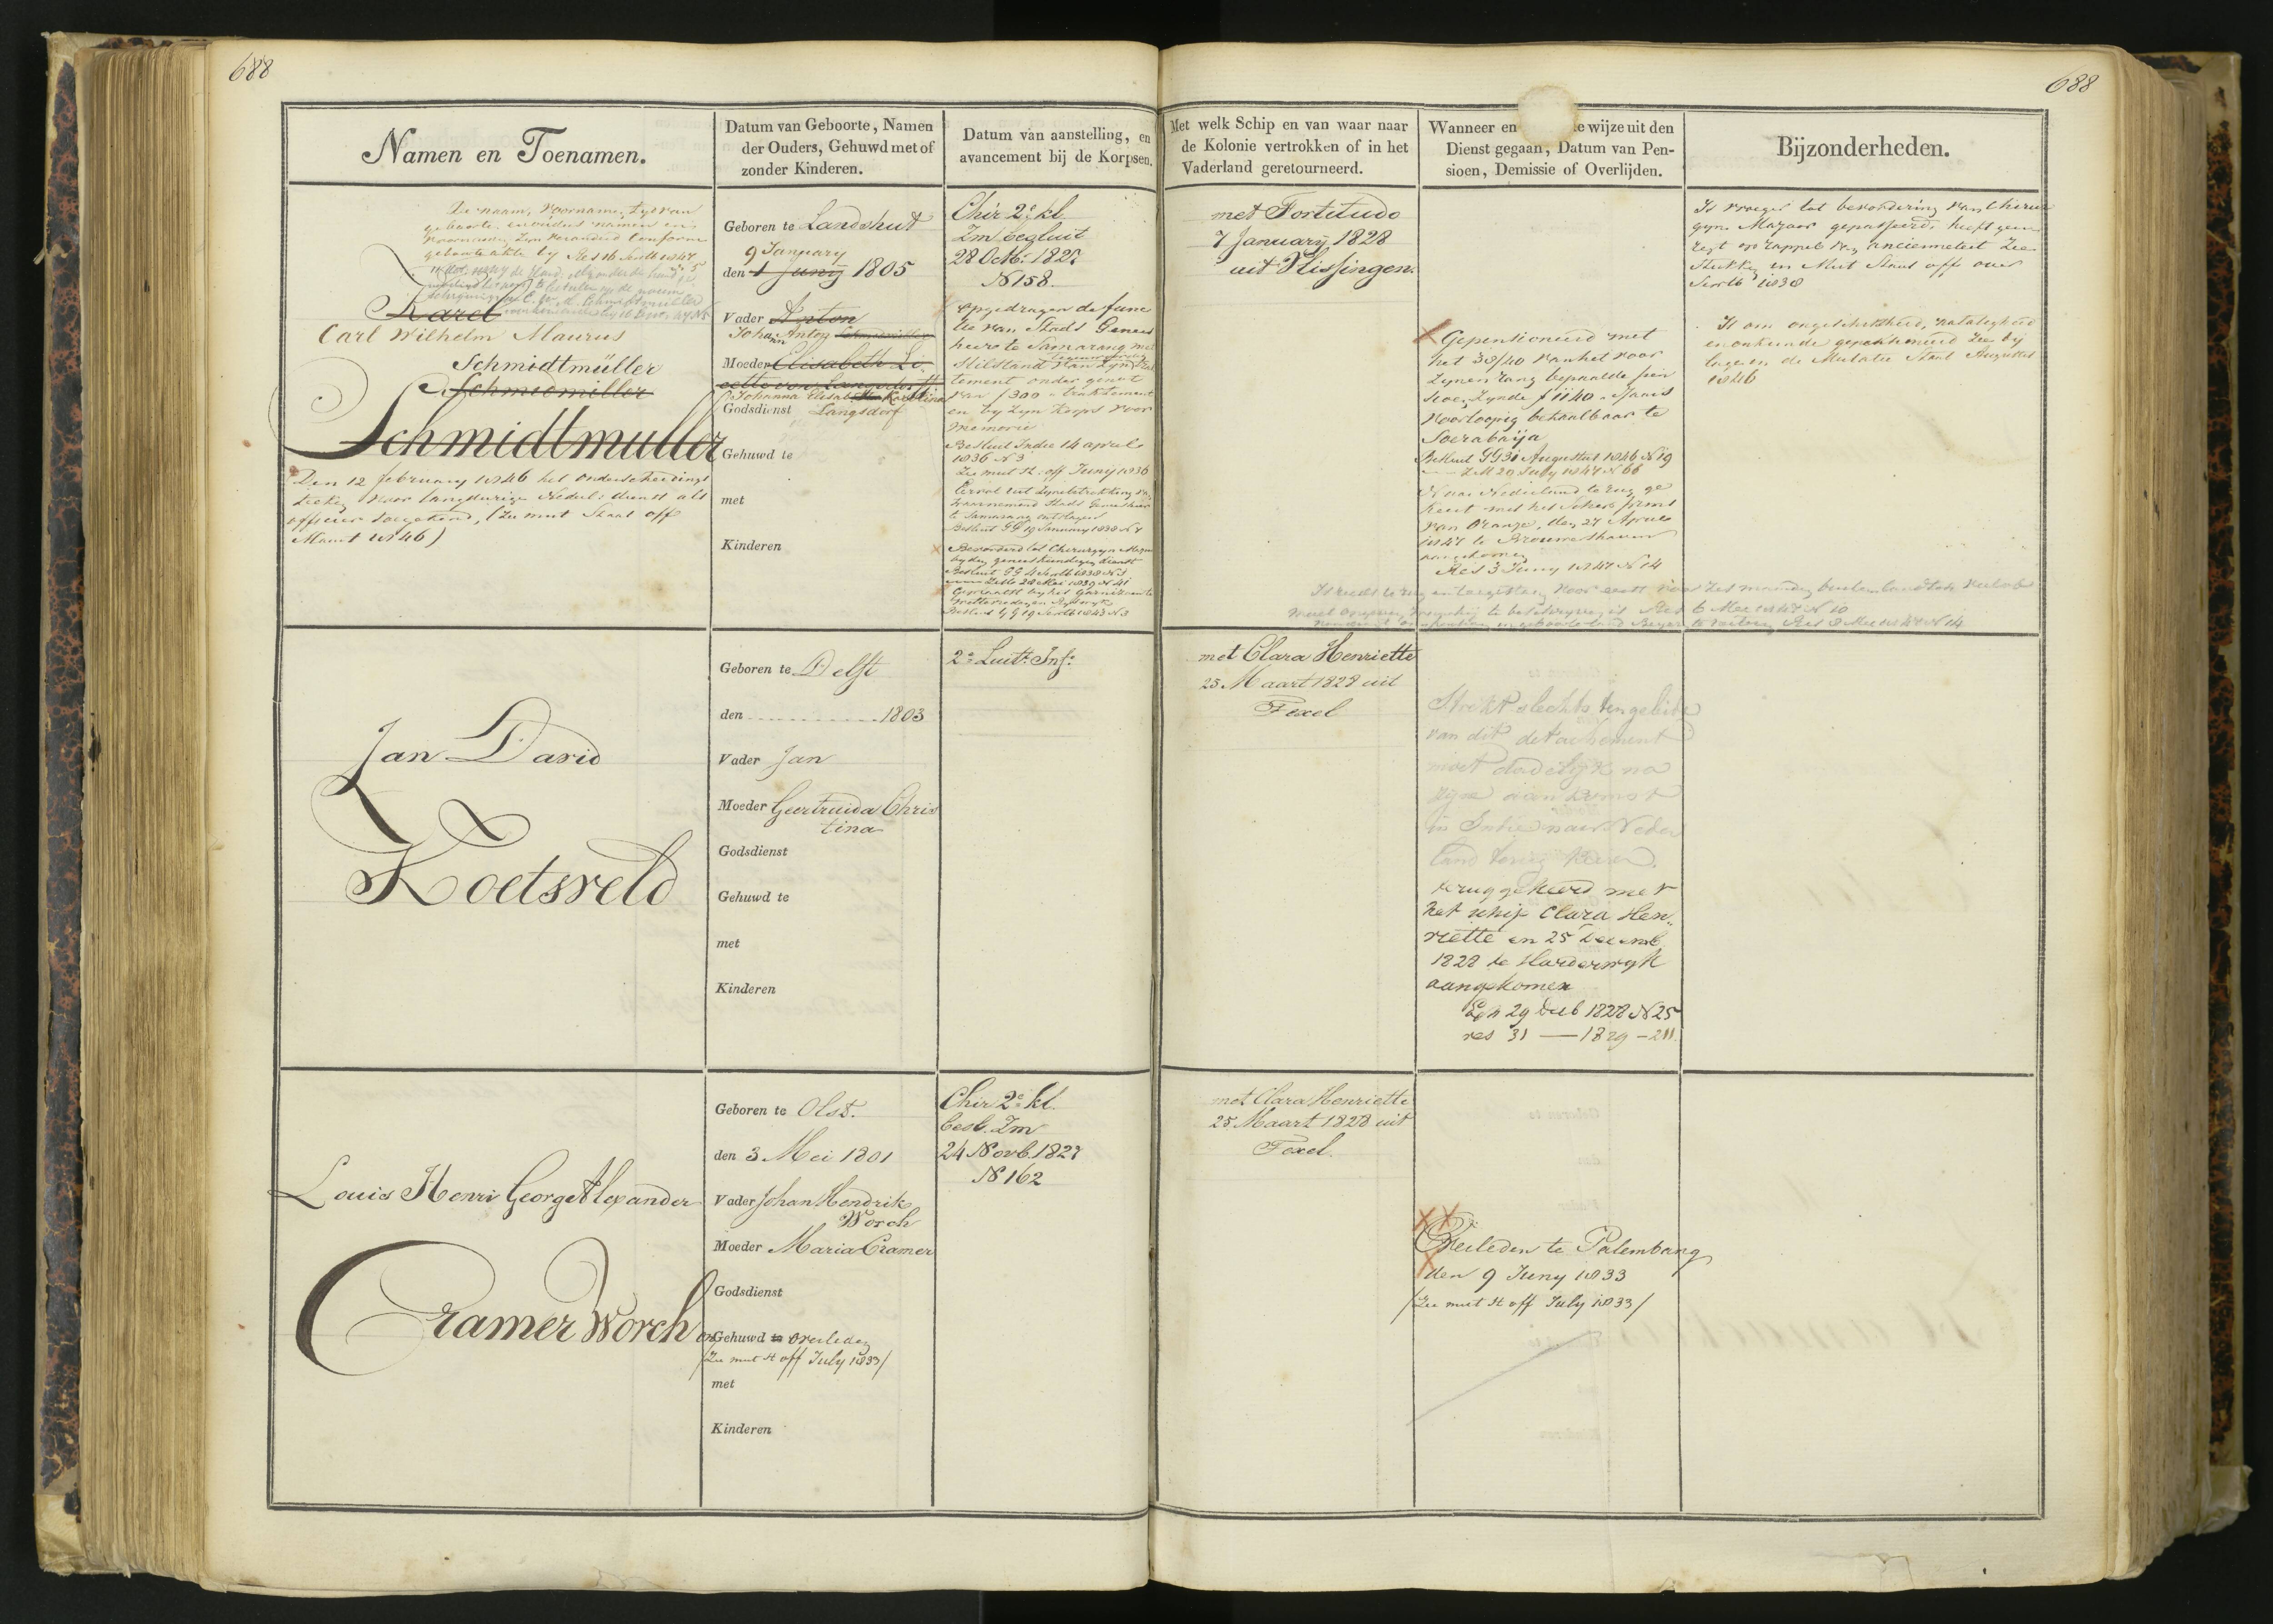 688
688
Namen en Toenamen.
Datum van Geboorte, Namen
der Ouders, Gehuwd met of
zonder Kinderen.
Datum van aanstelling, en
avancement bij de Korpsen.
Met welk Schip en van waar naar
de Kolonie vertrokken of in het
Vaderland geretourneerd.
Wanneer en wijze uit den
Dienst gegaan, Datum van Pen-
sioen, Demissie of Overlijden.
Bijzonderheden.
De naam, voorname, tyd van
geboorte en ouders namen en
voornamen zyn veranderd conform
geboorte akte by
Karel
Carl Wilhelm Maurus
Schmidtmüller
Schmidtmuller
Den 12 february 1846 het onderscheidings
teeken voor langdurige Nederl: dienst als
officier toegekend, (Zie mut Staat off
Maart 1846)
Geboren te Landshut
9 January
den 1 Juny 1805
Vader Anton
Johann Anton
Moeder Elisabeth
Johanna Elisab Karolina
Godsdienst Langsdorf
Gehuwd te
met
Kinderen
Chir 2e kl.
Zm besluit
28 Octb: 1827
N 158.
opgedragen de func
tie van Stads Genees
heer te Samarang met
Stilstand van zyn
tegenwoordig
tement onder genot
van f 300 - traktement
en by zyn korps voor
memorie
Besluit Indie 14 april
1836 N 3
Zie mut st: off Juny 1836
te Samarang ontslagen
Besluit GG 19 January 1838 N
Bevorderd tot Chirurgyn Majoor
by den geneeskundigen dienst
Besluit GG 4 Septb 1838 N 3
Geplaatst by het Garnizoen te
Besluit GG 19 Septb 1843 N 3
met Fortitudo
7 January 1828
uit Vlissingen.
Gepensioneerd met
het 38/40 van het voor
zynen rang bepaalde pen
sioen, zynde f 1140 - Jaars
voorloopig betaalbaar te
Soerabaya
Besluit GG 31 Augustus 1846 N 19
Z M 20 July 1847 N 66
Naar Nederland terug ge
keerd met het Schip prins
van Oranje, den 27 April
1847 te Brouwershaven
aangekomen
Res 3 Juny 1847 N 14
Is vroeger tot bevordering van Chirur
gyn Majoor gepasseerd, heeft geen
regt op rappel van ancienneteit Zie
Stukken en Mut Staat off over
Septb 1838
Is om ongeschiktheid, nalatigheid
en onkunde gepensioneerd Zie by
lagen de Mutatie Staat Augustus
1846
6 Mei 1848 N 10
Jan David
Koetsveld
Geboren te Delft
den 1803
Vader Jan
Moeder Geertruida Chris
tina
Godsdienst
Gehuwd te
met
Kinderen
2e Luit: Inf:
met Clara Henriette
25 Maart 1828 uit
Texel
Strekt slechts ten geleide
van dit detachement
moet dadelyk na
zyne aankomst
in Indie naar Neder
land terug keeren.
terug gekeerd met
het schip Clara Hen
riette en 25 Decemb
1828 te Harderwyk
aangekomen
29 Decb 1828 N 25
res 31 — 1829 - 211
Louis Henri George Alexander
Cramer Worch
Geboren te Olst.
den 3 Mei 1801
Vader Johan Hendrik
Worch
Moeder Maria Cramer
Godsdienst
Gehuwd te overleden
(Zie mut st off July 1833)
met
Kinderen
Chir 2e kl.
besl. Zm
24 Novb. 1827
N 162
met Clara Henriette
25 Maart 1828 uit
Texel.
Overleden te Palembang
den 9 Juny 1833
(Zie mut st off July 1833)